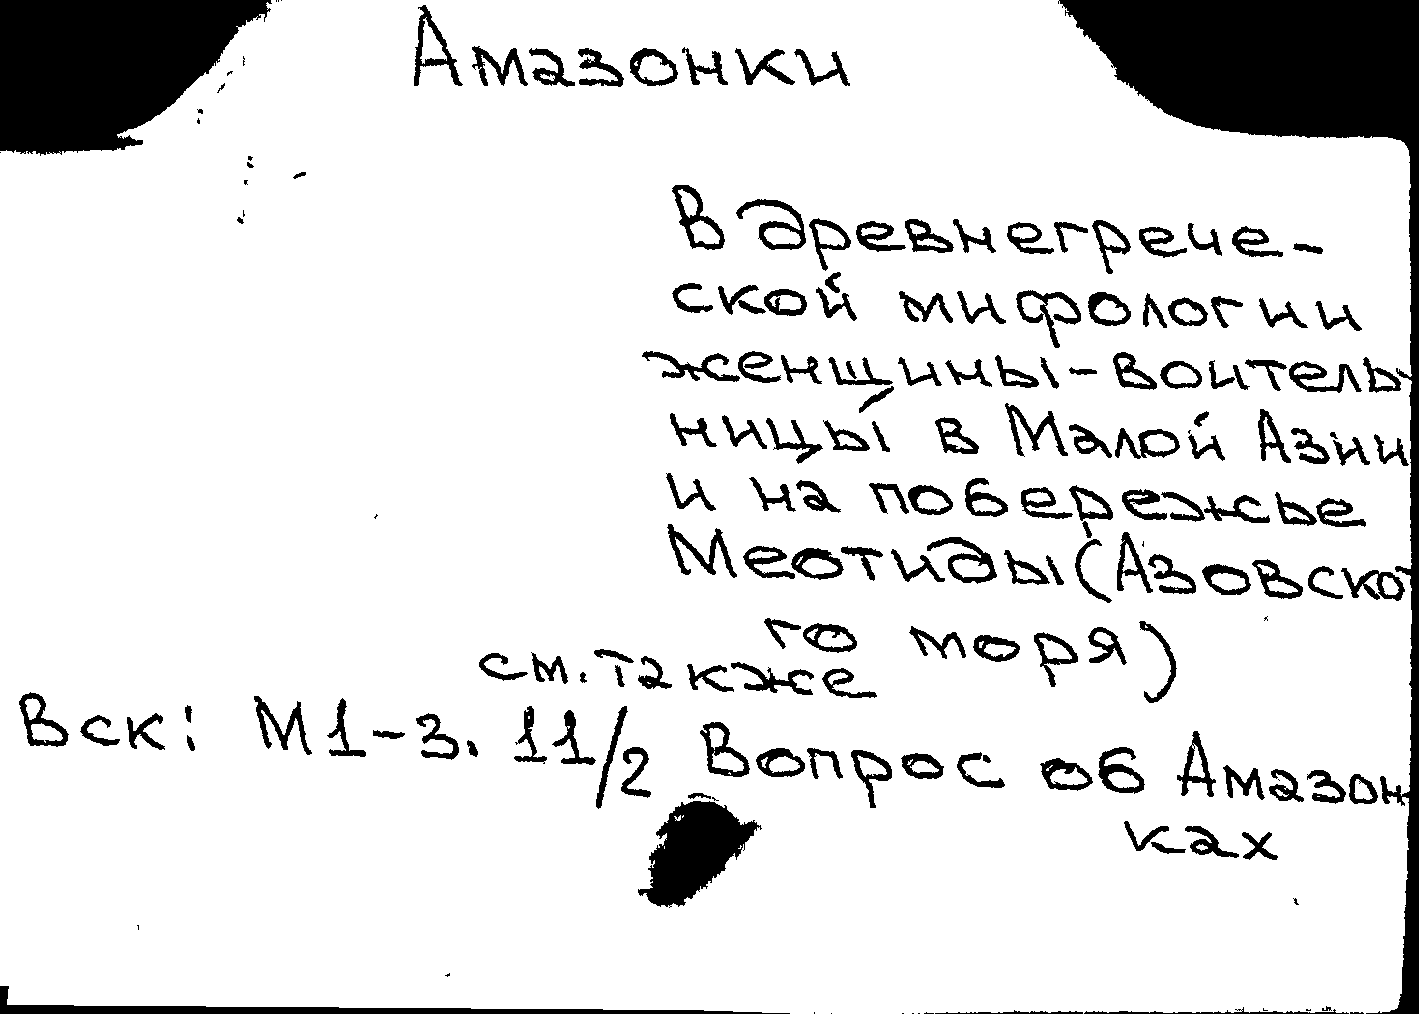 Амазонки
В древнегрече-
ской мифологии
женщины-воитель-
ницы в Малой Азии
и на побережье
Меотиды (Азовско-
го моря)
см. также
Вск: М1-3. 11/2 Вопрос об Амазон-
ках